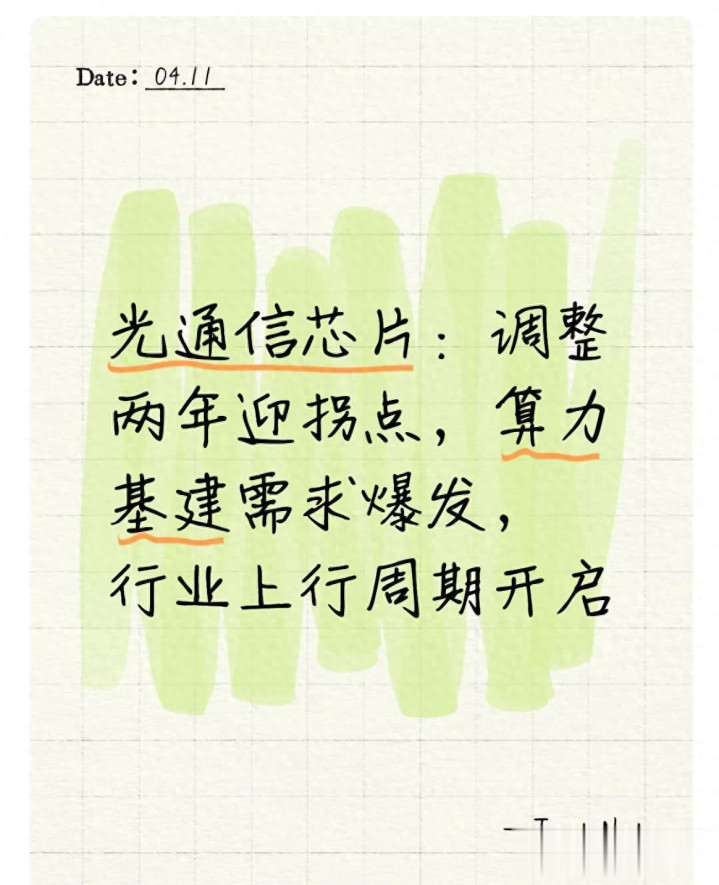 Date: 04.11
光通信芯片：调整
两年迎拐点，算力
基建需求爆发，
行业上行周期开启